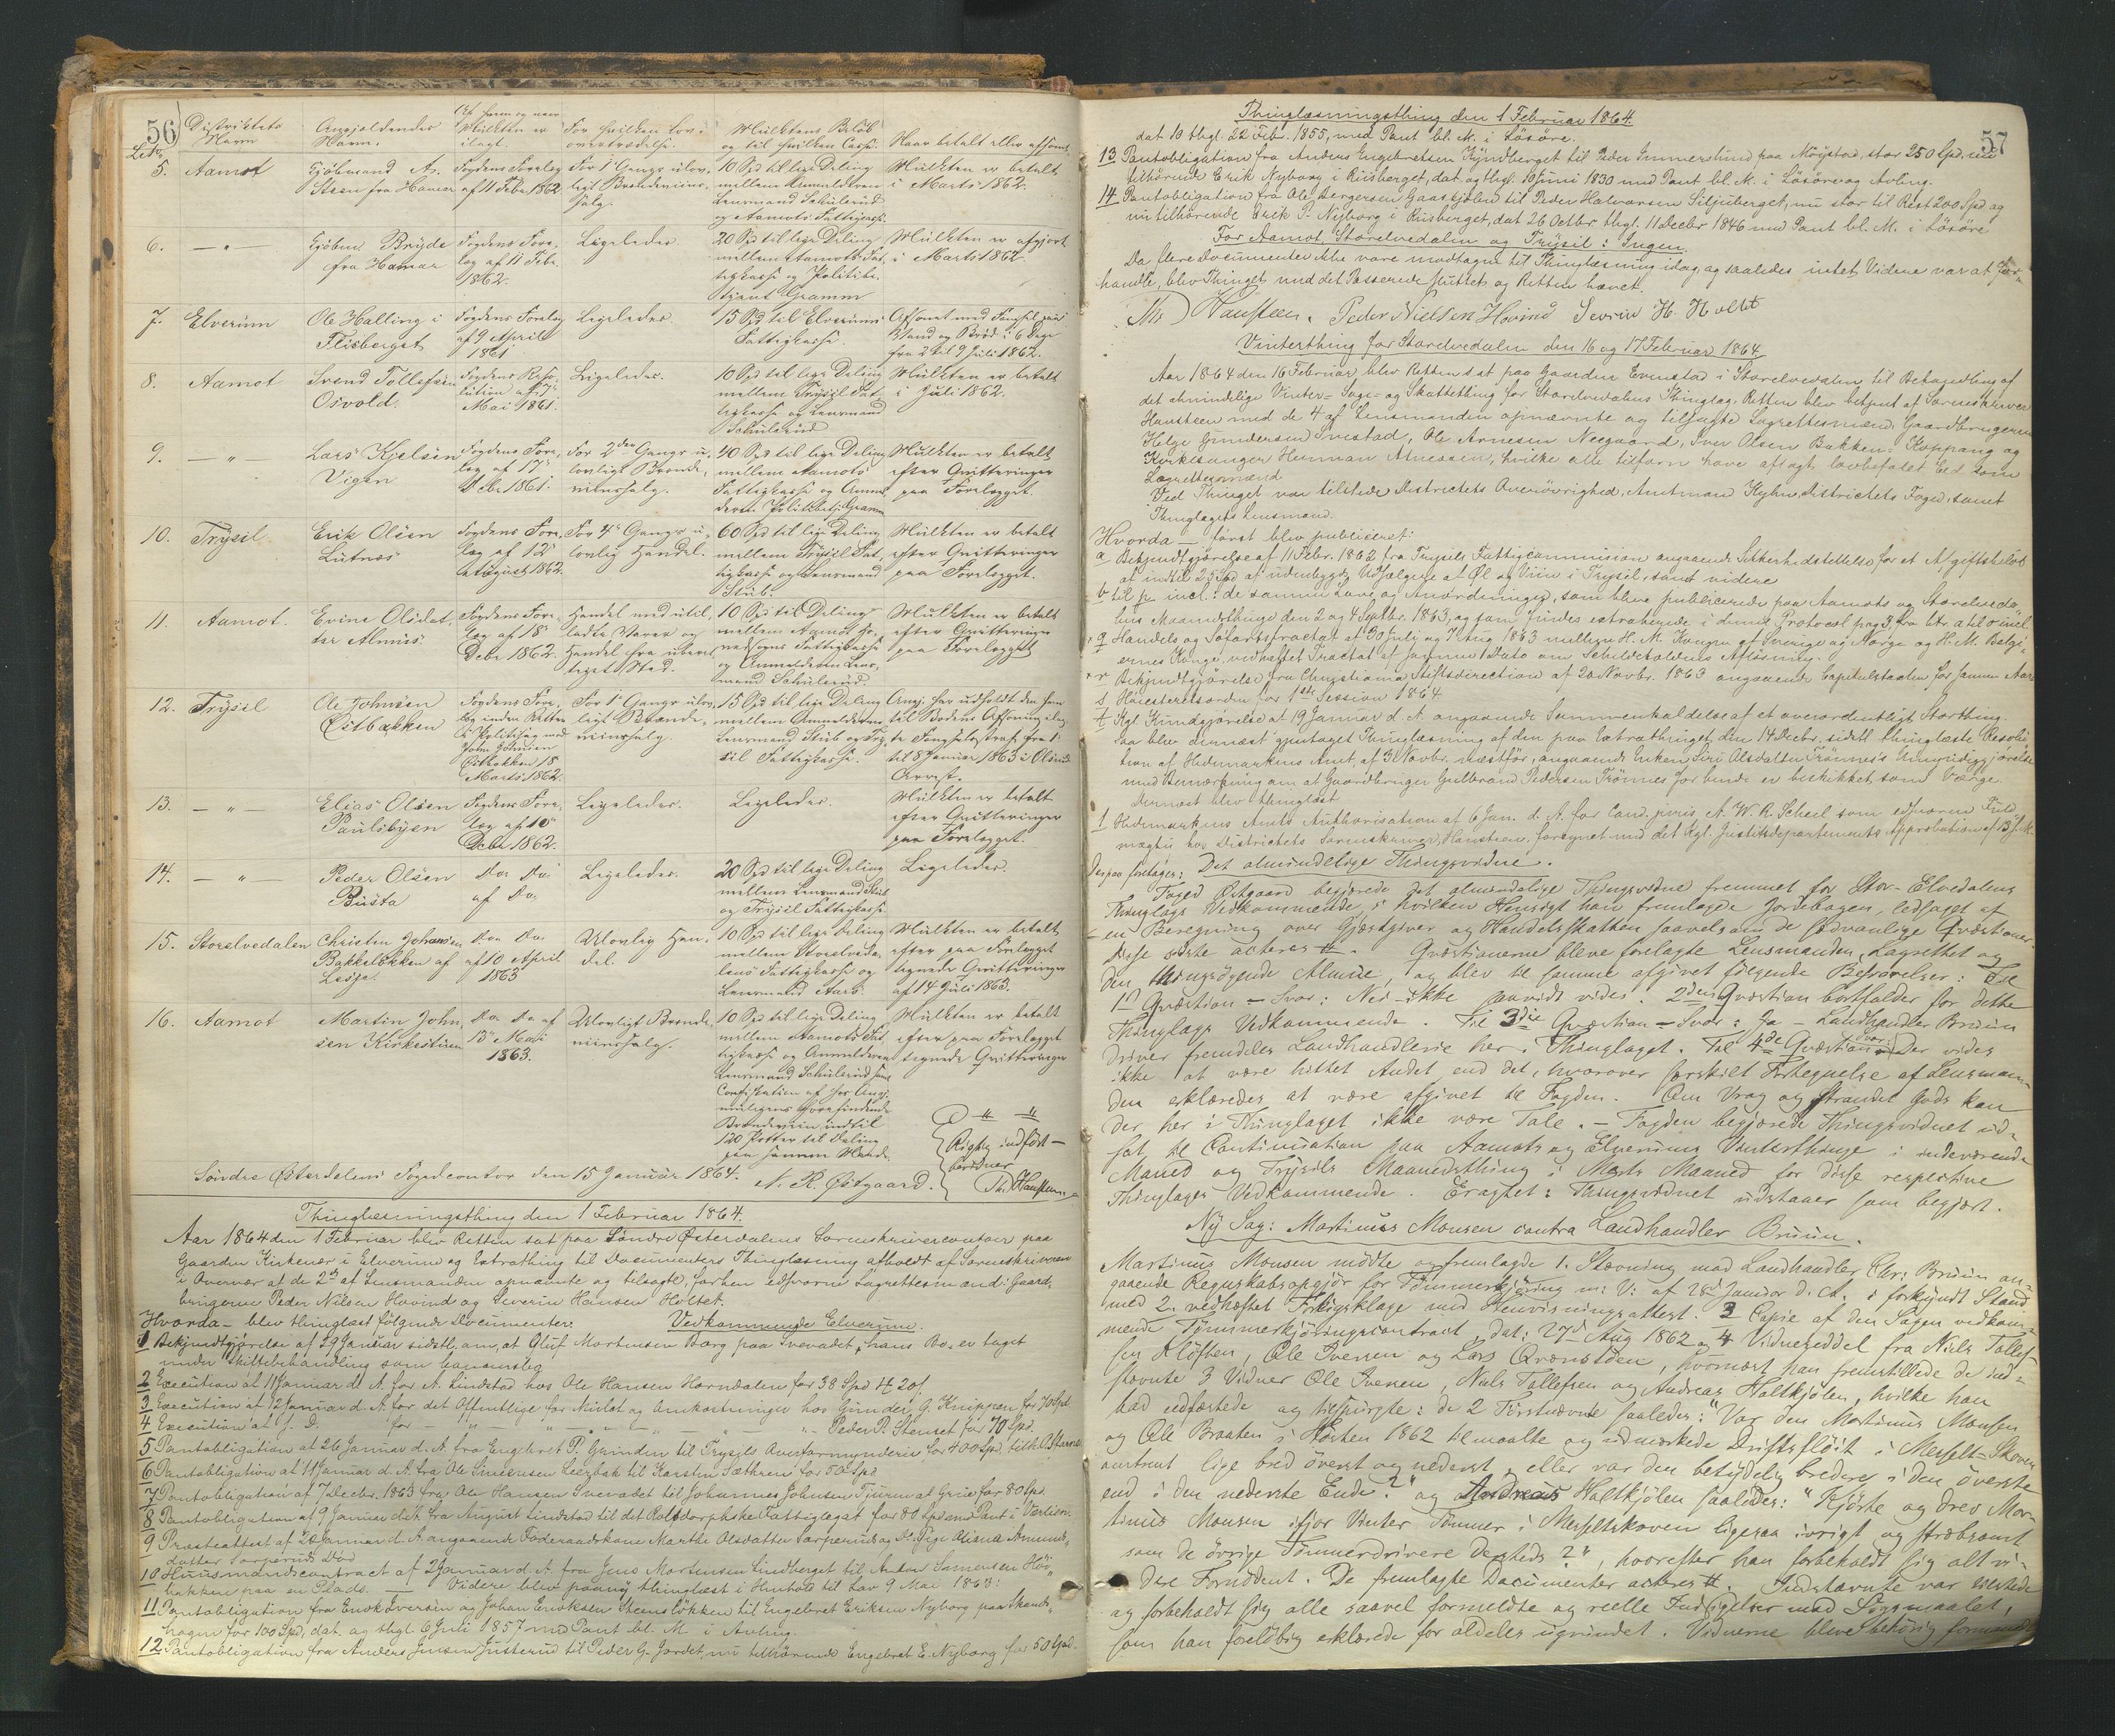 56
Distriktets Navn
Angjældendes Navn.
Af hvem og naar Mulkten er ilagt.
For hvilken Lovovertrædelse.
Mulktens Beløb og til hvilken Casse.
Naar betalt eller afsonet.
5. Aamot
Kjøbmand A. Steen fra Hamar
Fogdens Forelæg af 11 Febr 1862
For 1ste Gangs ulovligt Brændeviinssalg.
10 Spd til lige Deling mellem Anmelderen Lensmand Schulerud og Aamots Fattigkasse.
Mulkten er betalt i Marts 1862.
6. — " —
Kjøbmd Bryde fra Hamar
Fogdens Forelæg af 11 Febr. 1862.
Ligeledes.
20 Spd til lige Deling mellem Aamots Fattigkasse og Politibetjent Gramm
Mulkten er afgjort i Marts 1862.
7. Elverum
Ole Halling i Flisberget
Fogdens Forelæg af 9 April 1861
Ligeledes.
15 Spd til Elverums Fattigkasse.
Afsonet med Fængsel paa Vand og Brød i 6 Dage fra 2 til 9 Juli 1862.
8. Aamot
Svend Tollefsen Osvold.
Fogdens Resolution af Mai 1861.
Ligeledes.
10 Spd til lige Deling mellem Trysil Fattigkasse og Lensmand Schulerud
Mulkten er betalt i Juli 1862.
9. — " —
Lars Kjelsen Vigen
Fogdens Forelæg af 17 Debr 1861.
For 2den Gangs ulovligt Brændeviinssalg.
40 Spd til lige Deling mellem Aamots Fattigkasse og Anmelderen Politibetj. Gramm
Mulkten er betalt efter Qvitteringer paa Forelægget.
10. Trysil
Erik Olsen Lutnæs
Fogdens Forelæg af 12 August 1862.
For 4de Gangs ulovlig Handel.
60 Spd til lige Deling mellem Trysil Fattigkasse og Lensmand Stub.
Mulkten er betalt efter Qvitteringer paa Forelægget.
11. Aamot.
Evine Olsdatter Almes.
Fogdens Forelæg af 18 Debr 1862.
Handel med utilladte Varer og Handel fra uberettiget Sted.
10 Spd til Deling mellem Aamot Fattigkasse og Anmelderen Lensmand Schulerud
Mulkten er betalt efter Qvitteringer paa Forelægget
12. Trysil
Ole Johnsen Østbakken
Fogdens Forelæg inden Retten i Politisag mod John Johnsen Østbakken 18 Marts 1862.
For 1ste Gangs ulovligt Brændeviinssalg.
15 Spd til lige Deling mellem Anmelderen Lensmand Stub og Trysil Fattigkasse.
Angj. har udholdt den ham til Bodens Afsoning ilagte Fængselsstraf fra 1 til 8 Januar 1863 i Olsrud Arrest.
13. — " —
Elias Olsen Paulsbyen
Fogdens Forelæg af 10 Debr 1862.
Ligeledes.
Ligeledes.
Mulkten er betalt efter Qvitteringer paa Forelægget.
14. — " —
Peder Olsen Busta
Do Do af Do
Ligeledes.
20 Spd til lige Deling mellem Lensmand Stub og Trysil Fattigkasse.
Ligeledes.
15. Storelvedalen
Christen Johansen Bakkeløkken af Lesje.
Do Do af 10 April 1863
Ulovlig Handel.
10 Spd til lige Deling mellem Storelvedalens Fattigkasse og Lensmand Aars.
Mulkten er betalt efter paa Forelægget tegnede Qvitteringer af 14 Juli 1863.
16. Aamot
Martin Johnsen Kirkestuen
Do Do af 13 Mai 1863.
Ulovligt Brændeviinssalg.
10 Spd til lige Deling mellem Aamots Fattigkasse og Anmelderen Lensmand Schulerud samt Confiskation af hos Angj. muligens forefindende Brændeviin indtil 120 Potter til Deling paa samme Maade.
Mulkten er betalt efter paa Forelægget tegnede Qvitteringer
Rigtig indført — bevidner
Th. Hansteen
Søndre Østerdalens Fogedcontor den 15 Januar 1864. N. R. Østgaard.
Thinglæsningsthing den 1 Februar 1864.
Aar 1864 den 1 Februar blev Retten sat paa Søndre Østerdalens Sorenskrivercontoir paa
Gaarden Kirkenær i Elverum og Extrathing til Documenters Thinglæsning afholdt af Sorenskriveren
i Overvær af de 2de af Lensmanden opnævnte og tilsagte, forhen edsvorne Lagrettesmænd: Gaard-
brugerne Peder Nilsen Hovind og Severin Hansen Holtet.
Hvorda — blev thinglæst følgende Documenter: Vedkommende Elverum.
1 Bekjendtgjørelse af 29 Januar sidstl. om, at Oluf Mortensen Borg paa Svevadet, hans Bo er taget
under Skiftebehandling som
2 Execution af 11 Januar d. A. for A. Lindstad hos Ole Hansen Horndalen for 38 Spd 4 # 20 s.
3 Execution af 12 Januar d. A. for det Offentlige for Mulct og Omkostninger hos Gunder G. Knappen for 70 Spd
4 Execution af s. D. for — " — Peder P. Stenset for 70 Spd.
5 Pantobligation af 26 Januar d. A. fra Engebret P. Grinden til Trysils Overformynderie for 400 Spd.
6 Pantobligation af 11 Januar d. A. fra Ole Simensen Leerbak til Karsten Sæthren for 50 Spd
7 Pantobligation af 7 Decbr. 1863 fra Ole Hansen Svevadet til Johannes Johnsen Tjuren af Grue for 80 Spd
8 Pantobligation af 9 Januar d. A. fra August Lindstad til det Rolsdorphske Fattiglegat for 80 Spd med Pant i
9 Præsteattest af 20 Januar d. A. angaaende Føderaadskone Marthe Olsdatter Sorperud og Pige Oliana Amunds-
datter Sorperuds Død
10 Huusmandscontract af 2 Januar d. A. fra Jens Mortensen Lindberget til Andreas Simensen Høi-
bakken paa en Plads. — Videre blev paany thinglæst i Henhold til Lov 9 Mai 1863:
11 Pantobligation fra Enok Iversen og Johan Enoksen Steensløkken til Engebret Eriksen Nyborg paa Skands-
hagen for 100 Spd, dat. og thgl. 6 Juli 1857 med Pant bl. M. i Avling.
12 Pantobligation fra Anders Jensen Justerud til Peder G. Jordet, nu tilhørende Engebret E. Nyborg for 50 Spd.
57
Thinglæsningsthing den 1 Februar 1864.
dat 10 thgl. 22 Febr. 1855, med Pant bl. M. i Løsøre.
13 Pantobligation fra Anders Engebretsen Kyndberget til Peder Emmerslund paa Møystad, stor 250 Spd, nu
tilhørende Erik Nyborg i Riisberget, dat. og thgl. 10 Juni 1830 med Pant bl. M. i Løsøre og Avling.
14 Pantobligation fra Ole Bergersen Gaaskjølen til Peder Halvorsen Siljuberget, nu stor til Rest 200 Spd og
nu tilhørende Erik P. Nyborg i Riisberget, dat 26 Octbr thgl. 11 Decbr 1846 med Pant bl. M. i Løsøre
For Aamot, Storelvedalen og Trysil: Ingen.
Da flere Documenter ikke vare modtagne til Thinglæsning idag, og saaledes intet Videre var at for-
handle, blev Thinget med det Passerede sluttet og Retten hævet.
Th. Hansteen. Peder Nielsen Hovind Severin H. Holtet
Vinterthing for Storelvedalen den 16 og 17 Februar 1864.
Aar 1864 den 16 Februar blev Retten sat paa Gaarden Evenstad i Storelvedalen til Behandling af
det almindelige Vinter- Sage- og Skattething for Storelvedalens Thinglag. Retten blev betjent af Sorenskriver
Hansteen med de 4 af Lensmanden opnævnte og tilsagte Lagrettesmænd, Gaardbrugerne
Helge Gundersen Imstad, Ole Arnesen Neegaard, Iver Olsen Bakken-Koppang og
Kirkesanger Herman Atnessen, hvilke alle tilforn have aflagt lovbefalet Eed som
Lagrettesmænd
Ved Thinget var tilstede Districtets Overøvrighed, Amtmand Kyhn, Districtets Foged, samt
Thinglagets Lensmand.
Hvorda — først blev publiceret:
a Bekjendtgjørelse af 11 Febr. 1862 fra Trysils Fattigcommission angaaende Sikkerhedsstillelse for et Afgiftsbeløb
af indtil 25 Spd af udenbygds Udsælgere af Øl og Viin i Trysil, samt videre
b til p incl: de samme Love og Anordninger, som bleve publicerede paa Aamots og Storelveda-
lens Maanedsthinge den 2 og 4 Septbr. 1863, og som findes extraherede i denne Protocol pag 3, fra Litr. a til o incl.
q Handels og Søfartstractat af 30 Juli og 7 Aug 1863 mellem H. M. Kongen af Sverige og Norge og H. M. Belgi-
ernes Konge, vedhæftet Tractat af samme Dato om Scheldetoldens Afløsning.
r Bekjendtgjørelse fra Christiania Stiftsdirection af 20 Novbr. 1863 angaaende Capitelstaxten for samme Aar
s Høiesteretsorden for 1ste Session 1864
t Kgl. Kundgjørelse af 19 Januar d. A. angaaende Sammenkaldelse af et overordentligt Storthing.
saa blev dernæst gjentaget Thinglæsning af den paa Extrathinget den 14 Decbr. sidstl. thinglæste Resolu-
tion af Hedemarkens Amt, af 3 Novbr. næstfør, angaaende Enken Siri Olsdatter Trønnes's Umyndiggjørelse
med Bemærkning om at Gaardbruger Gulbrand Pedersen Trønnes for hende er beskikket som Værge.
Dernæst blev thinglæst
1 Hedemarkens Amts Authorisation af 6 Jan. d. A. for Cand. juris A. W. R. Scheel som edsvoren Fuld-
mægtig hos Districtets Sorenskriver, Hansteen, forsynet med det Kgl. Justitsdepartements Approbation af 13 s. M.
Derpaa foretages: Det almindelige Thingsvidne.
Foged Østgaard begjærede det almindelige Thingsvidne fremmet for Stor-Elvedalens
Thinglags Vedkommende, i hvilken Hensigt han fremlagde Jordebogen, ledsaget af
en Beregning over Gjæstgiver og Handelsskatten saavelsom de sædvanlige Qvæstioner.
Disse sidste acteres #. Qvæstionerne bleve forelagte Lensmanden, Lagrettet og
den thingsøgende Almue, og blev til samme afgivet følgende Besvarelser: Til
1ste Qvæstion — Svar: Nei — ikke saavidt vides. 2den Qvæstion bortfalder for dette
Thinglags Vedkommende. Til 3die Qvæstion — Svar: Ja — Landhandler Bruun
driver fremdeles Landhandlerie her i Thinglaget. Til 4de Qvæstion Svar: Der vides
ikke at være hittet Andet end det, hvorover særskilt Fortegnelse af Lensman-
den erklæredes at være afgivet til Fogden. Om Vrag og strandet Gods kan
der her i Thinglaget ikke være Tale. — Fogden begjærede Thingsvidnet ud-
sat til Continuation paa Aamots og Elverums Vinterthinge i indeværende
Maaned og Trysils Maanedsthing i Marts Maaned for disse respective
Thinglages Vedkommende. Eragtet: Thingsvidnet udstaaer som begjært.
Ny Sag: Martinus Monsen contra Landhandler Bruun.
Martinus Monsen mødte og fremlagde 1. Stævning mod Landhandler Chr: Bruun an-
gaaende Regnskabsopgjør for Tømmerkjøring m: V: af 28d Januar d. A. i forkyndt Stand
med 2. vedhæftet Forligsklage med Henvisningsattest. 3 Copie af den Sagen vedkom-
mende Tømmerkjøringscontract, dat: 27d Aug 1862 og 4 Vidneseddel fra Niels Tollef-
sen Kløften, Ole Iversen og Lars Qvernlien, hvornæst han fremstillede de ind-
stevnte 3 Vidner Ole Iversen, Niels Tollefsen og Andreas Holtkjølen, hvilke han
bad edfæstede og tilspurgte: de 2 Førstnævnte saaledes: "Var den Martinus Monsen
og Ole Braaten i Høsten 1862 tilmaalte og udmærkede Driftsfløit i Messelt-Skoven
omtrent lige bred øverst og nederst, eller var den betydelig bredere i den øverste
end i den nederste Ende?" og Andreas Holtkjølen saaledes: "Kjørte og drev Mar-
tinus Monsen ifjor Vinter Tømmer i Messeltskoven ligesaa ivrigt og stræbsomt
som de øvrige Tømmerdrivere dersteds?", hvorefter han forbeholdt sig alt vi-
dere Fornødent. De fremlagte Documenter acteres #. Indstævnte var tilstede
og forbeholdt sig alle saavel formeldte og reelle Indsigelser mod Søgsmaalet,
som han foreløbig erklærede for aldeles ugrundet. Vidnerne bleve behørig formanede